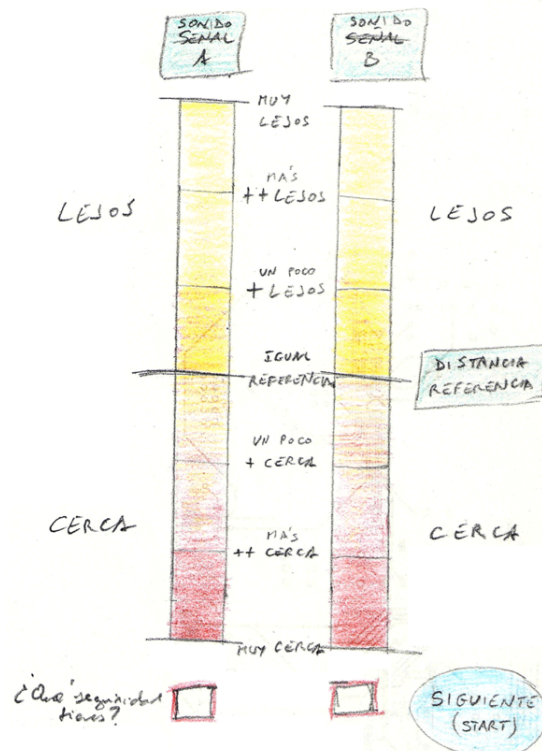 SONIDO
SEÑAL
A
SONIDO
SEÑAL
B
MUY
LEJOS
MÁS
++ LEJOS
LEJOS
LEJOS
UN POCO
+ LEJOS
IGUAL
REFERENCIA
DISTANCIA
REFERENCIA
UN POCO
+ CERCA
CERCA
MÁS
++ CERCA
CERCA
MUY CERCA
¿Qué seguridad
tienes?
SIGUIENTE
(START)